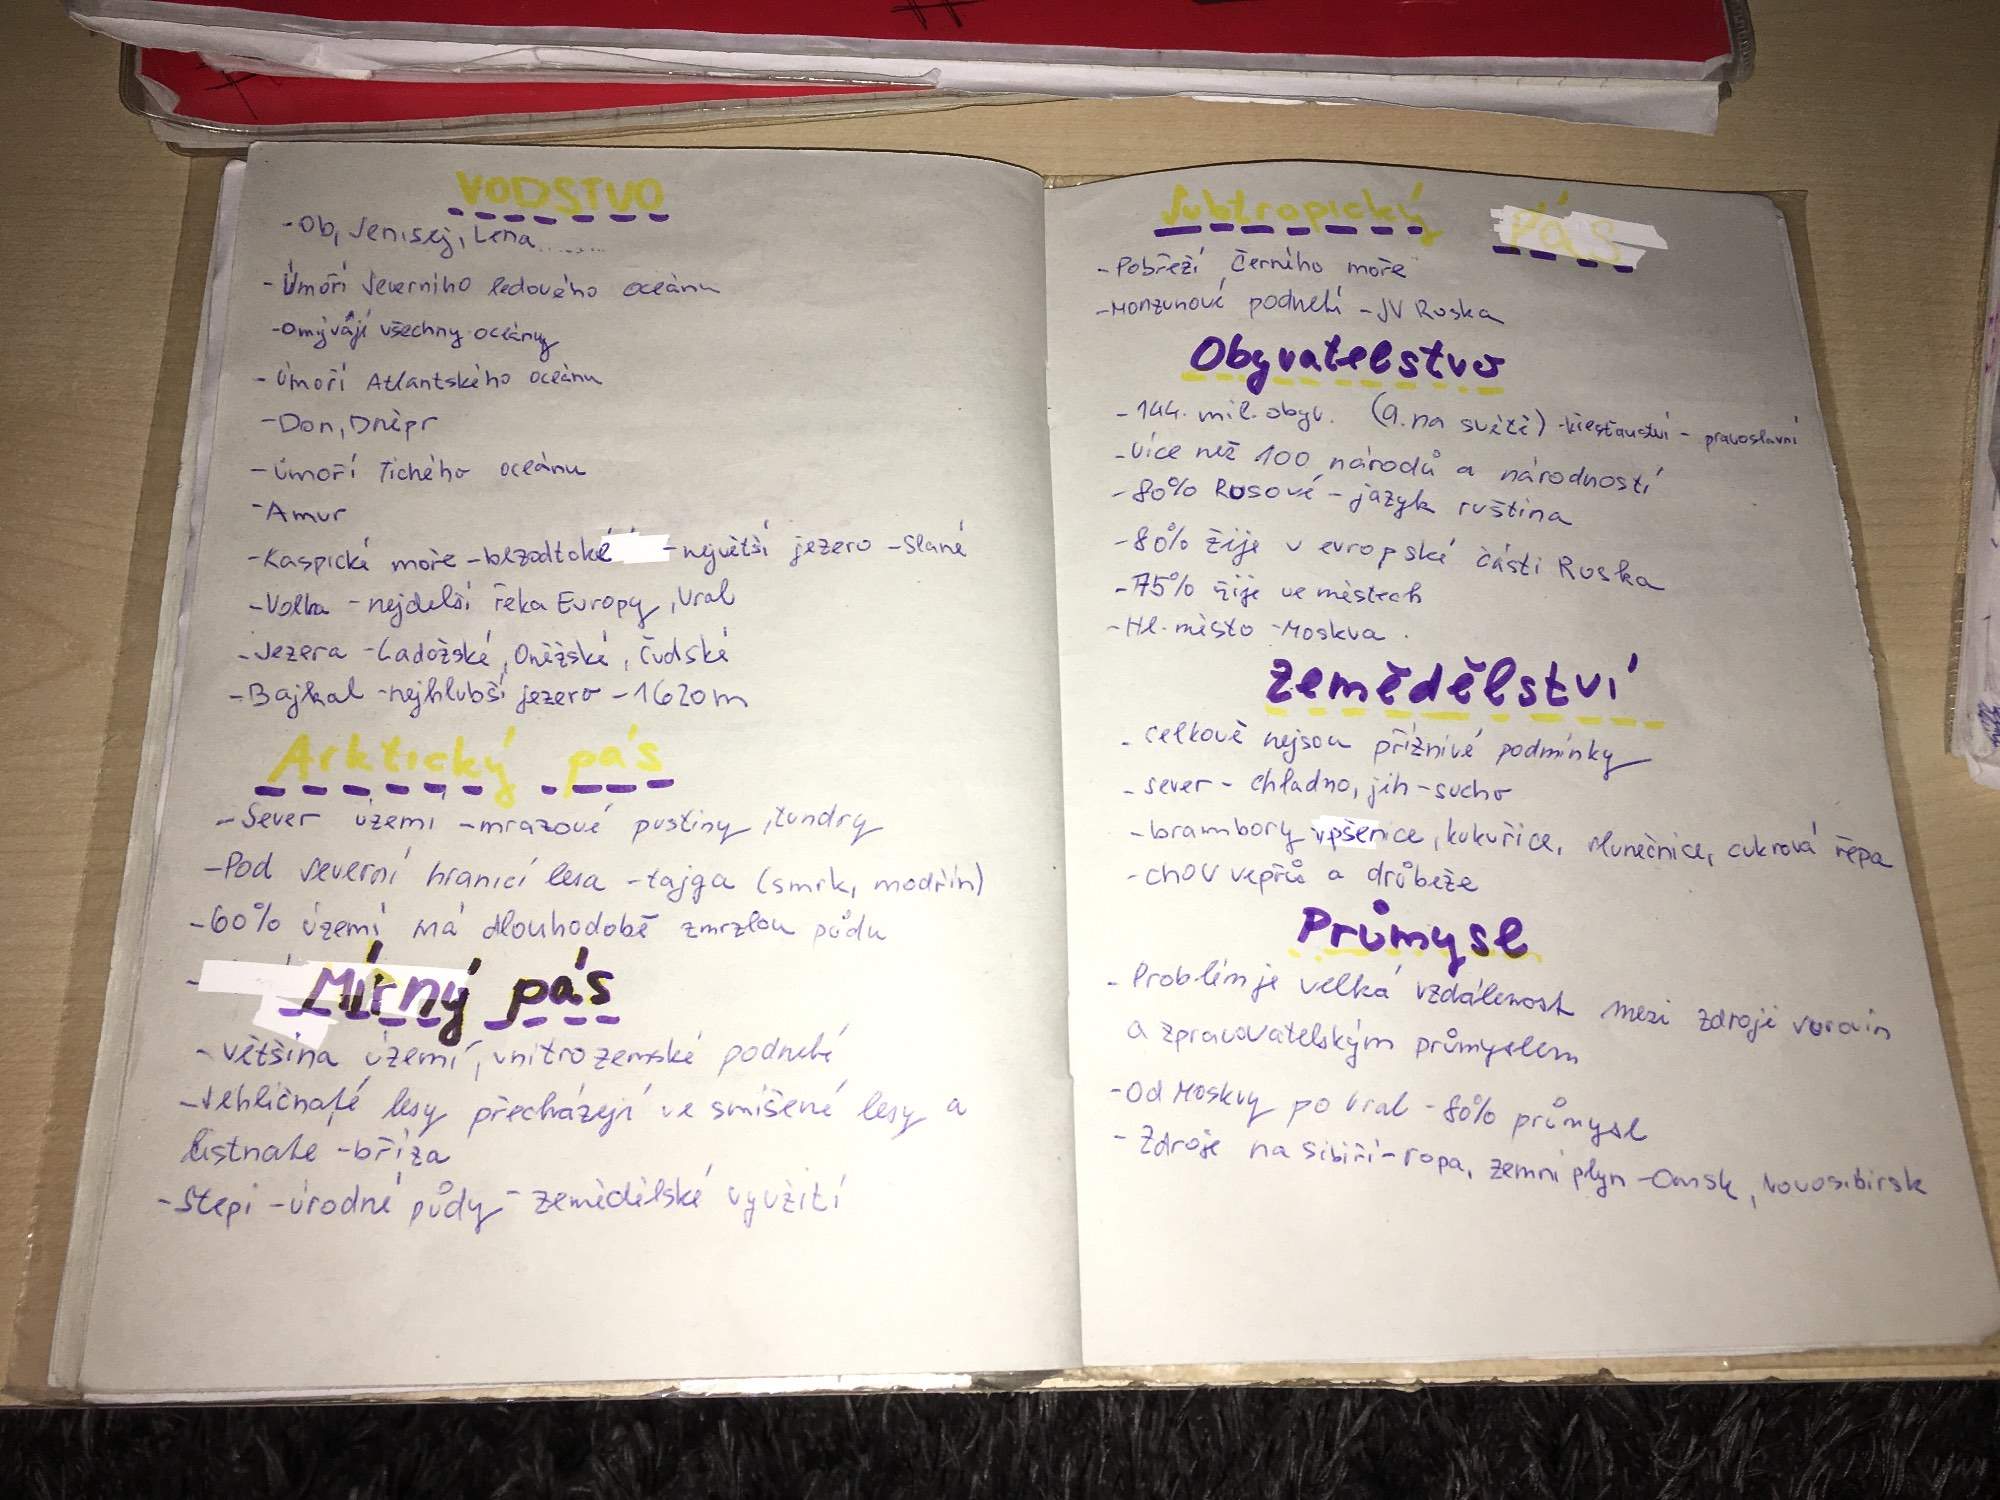 VODSTVO
-Ob, Jenisej, Lena........
-Úmoří Severního ledového oceánu
-Omývájí všechny oceány
-Úmoří Atlantského oceánu
-Don, Dněpr
-Úmoří Tichého oceánu
-Amur
-Kaspické moře -bezodtoké -největší jezero -Slané
-Volha -nejdelší řeka Evropy, Ural
-Jezera -Ladožské, Oněžské, Čudské
-Bajkal -nejhlubší jezero -1620m
Arktický pás
-Sever území -mrazové pustiny, tundry
-Pod severní hranicí lesa -tajga (smrk, modřín)
-60% území má dlouhodobě zmrzlou půdu
Mírný pás
-většina území, vnitrozemské podnebí
-Jehličnaté lesy přecházejí ve smíšené lesy a
listnaté -bříza
-Stepi -úrodné půdy - zemědělské využití
Subtropický pás
-Pobřeží Černého moře
-Monzunové podnebí -JV Ruska
Obyvatelstvo
-144. mil. obyv. (9. na světě) -křesťanství - pravoslavní
-více než 100 národů a národností
-80% Rusové - jazyk ruština
-80% žije v evropské části Ruska
-75% žije ve městech
-Hl. město -Moskva.
Zemědělství
-celkově nejsou příznivé podmínky
-sever - chladno, jih -sucho
-brambory, pšenice, kukuřice, slunečnice, cukrová řepa
-chov vepřů a drůbeže
Průmysl
-Problém je velká vzdálenost mezi zdroji surovin
a zpracovatelským průmyslem
-Od Moskvy po Ural - 80% průmysl
-Zdroje na Sibiři -ropa, zemní plyn -Omsk, Novosibirsk